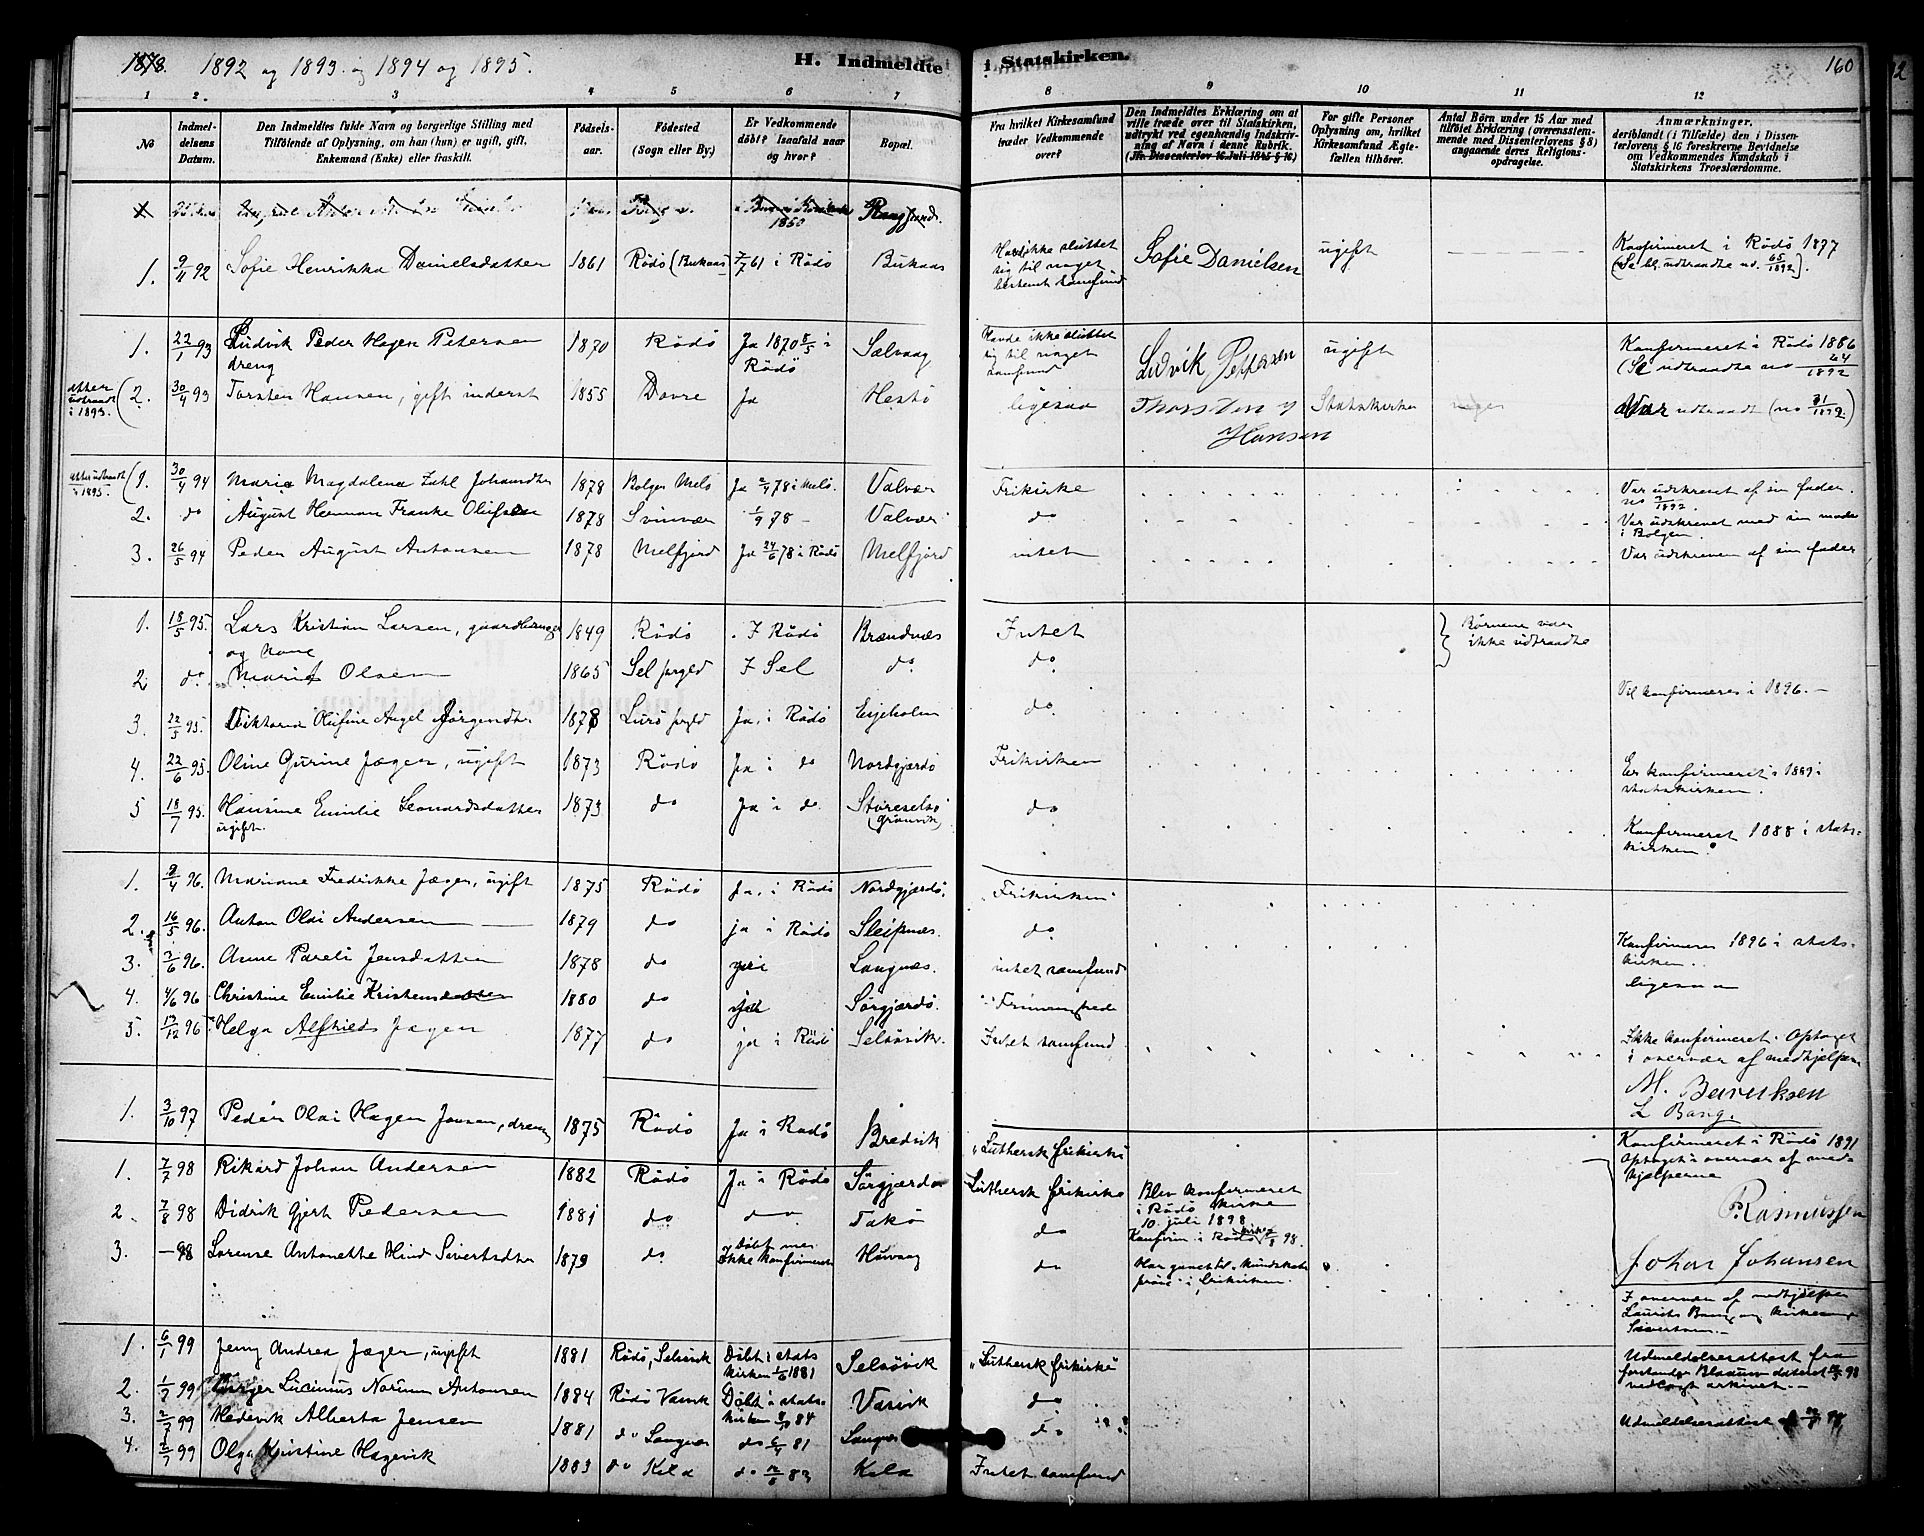 1878. 1892 og 1893. og 1894 og 1895.
H. Indmeldte i Statskirken.
160
1 2. 3 4 5 6 7 8 9 10 11 12
No
Indmel-
delsens
Datum.
Den Indmeldtes fulde Navn og borgerlige Stilling med
Tilføiende af Oplysning, om han (hun) er ugift, gift,
Enkemand (Enke) eller fraskilt.
Fødsels-
aar.
Fødested
(Sogn eller By.)
Er Vedkommende
døbt? Isaafald naar
og hvor?
Bopæl.
Fra hvilket Kirkesamfund
træder Vedkommende
over?
Den Indmeldtes Erklæring om at
ville træde over til Statskirken,
udtrykt ved egenhændig Indskriv-
ning af Navn i denne Rubrik.
(Jfr. Dissenterlov 16 Juli 1845 § 16)
For gifte Personer
Oplysning om, hvilket
Kirkesamfund Ægte-
fællen tilhører.
Antal Børn under 15 Aar med
tilføiet Erklæring (overensstem-
mende med Dissenterlovens § 8)
angaaende deres Religions-
opdragelse.
Anmærkninger,
deriblandt (i Tilfælde) den i Dissen-
terlovens § 16 foreskrevne Bevidnelse
om Vedkommendes Kundskab i
Statskirkens Troeslærdomme.
1850
1. 9/11 92 Sofie Henrikka Danielsdatter 1861 Rödö (Bukaas) 7/7 61 i Rödö Bukaas
Havde ikke sluttet
sig til noget
bestemt samfund
Sofie Danielsen ugift
Konfirmeret i Rödö 1877
(Se bl. udtraadte no. 65/1892).
1. 22/1 93 Ludvik Peder Hagen Petersen
dreng
1870 Rödö Ja 1870 8/5 i
Rödö
Selvaag
Havde ikke sluttet
sig til noget
samfund
Ludvik Pettersen ugift
Konfirmeret i Rödö 1886
(Se udtraadte no 24/1892
atter
udtraadt
i 1893.
2. 30/4 93 Torsten Hansen, gift inderst 1855 Dovre Ja Hestö
ligesaa Thorsten
Hansen
Statskirken ingen Var udtraadt (no 31/1892)
atter udtraadt
i 1895.
1. 30/4 94 Marie Magdalena Zahl Johansdtr 1878 Bolgen Melö Ja 2/4 78 i Melö. Valvær
Frikirke
Var udskrevet af sin fader.
no 9/1892.
2. do August Herman Franke Olufsen 1878 Svinvær 1/9 78 – Valvær do
Var udskrevet med sin moder
i Bolgen.
3. 26/5 94 Peder August Antonsen 1878 Melfjord Ja 24/6 78 i Rödö Melfjord intet
Var udskreven af sin fader
1. 18/5 95. Lars Kristian Larsen, gaardbruger
og kone
1849 Rödö I Rödö Brændnæs Intet
Börnene var
ikke udtraadte
2. do Marit Olsen 1865 Sel prgld I Sel do do
3. 22/5 95. Viktoria Olufine Angel Jörgensdtr 1878 Lurö prgld Ja, i Rödö Esjeholm do
Vil konfirmeres i 1896. –
4. 22/6 95. Oline Gurine Jæger, ugift 1873 Rödö Ja i do Nordgjærdö Frikirken
Er konfirmeret i 1889 i
statskirken.
5 18/7 95. Hansine Emilie Leonardsdatter
ugift.
1873 do Ja i do Storeselsö
(Grönvik)
do
Konfirmeret 1888 i stats-
kirken.
1. 9/4 96. Mariane Fredrikke Jæger, ugift 1875 Rödö Ja, i Rödö Nordgjærdö. Frikirken
2. 16/5 96. Anton Olai Andersen 1879 do ja i Rödö Sleipnæs. do
Konfirmeres 1896 i stats-
kirken.
3. 7/6 96. Anne Pareli Jensdatter 1878 do Langnæs. intet samfund
ligesaa
4. 4/6 96. Christine Emilie Kristensdatter 1880 do Sörgjærdö.
5. 13/12 96. Helga Alfhild Jæger 1877 do ja i Rödö Selsövik. Intet samfund.
Ikke konfirmeret. Optaget
i overvær af medhjelpere
L Bang.
1. 3/10 97 Peder Olai Hagen Jonsen, dreng 1875 Rödö Ja i Rödö Bredvik "Luthersk frikirke"
Konfirmeret i Rödö 1891
Optaget i overvær af med-
hjelperne
1. 7/7 98 Rikard Johan Andersen 1882 Rödö Ja i Rödö Sörgjærdö Luthersk frikirke
Blev konfirmeret
i Rödö kirke
10. juli 1898
P. Rasmussen
2. 7/8 98 Didrik Gjert Pedersen 1881 do do Takö do
Konfirm. i Rödö kirke 7/8 98.
3. – 98 Lorense Antonette Hind Sivertsdtr 1879 do Döbt men
Ikke konfirmeret
Havaag do
Har gaaet til kundskabs-
pröve i frikirken.
Johan Johansen
I overvær af medhjelper
Laurits Bang og kirkesanger
Sivertsen. –
1. 6/1 99 Jenny Andrea Jæger, ugift 1881 Rödö, Selsövik Döbt i stats
kirken 1/6 1881
Selsövik "Luthersk frikirke"
Udmeldelsesattest fra
forstander Blaauw dateret 98
vedlagt arkivet. –
2. 1/7 99 Birger Lucinius Norum Antonsen 1884 Rödö Værvik Döbt i stats-
kirken 84
Værvik do
3. 2/7 99 Hedevik Alberta Jensen 1881 do Langnæs do 81 Langnes do
Udmeldelsesattest
4. 2/7 99 Olga Kristine Hagevik 1883 do Kila do 83 Kila Intet samfund